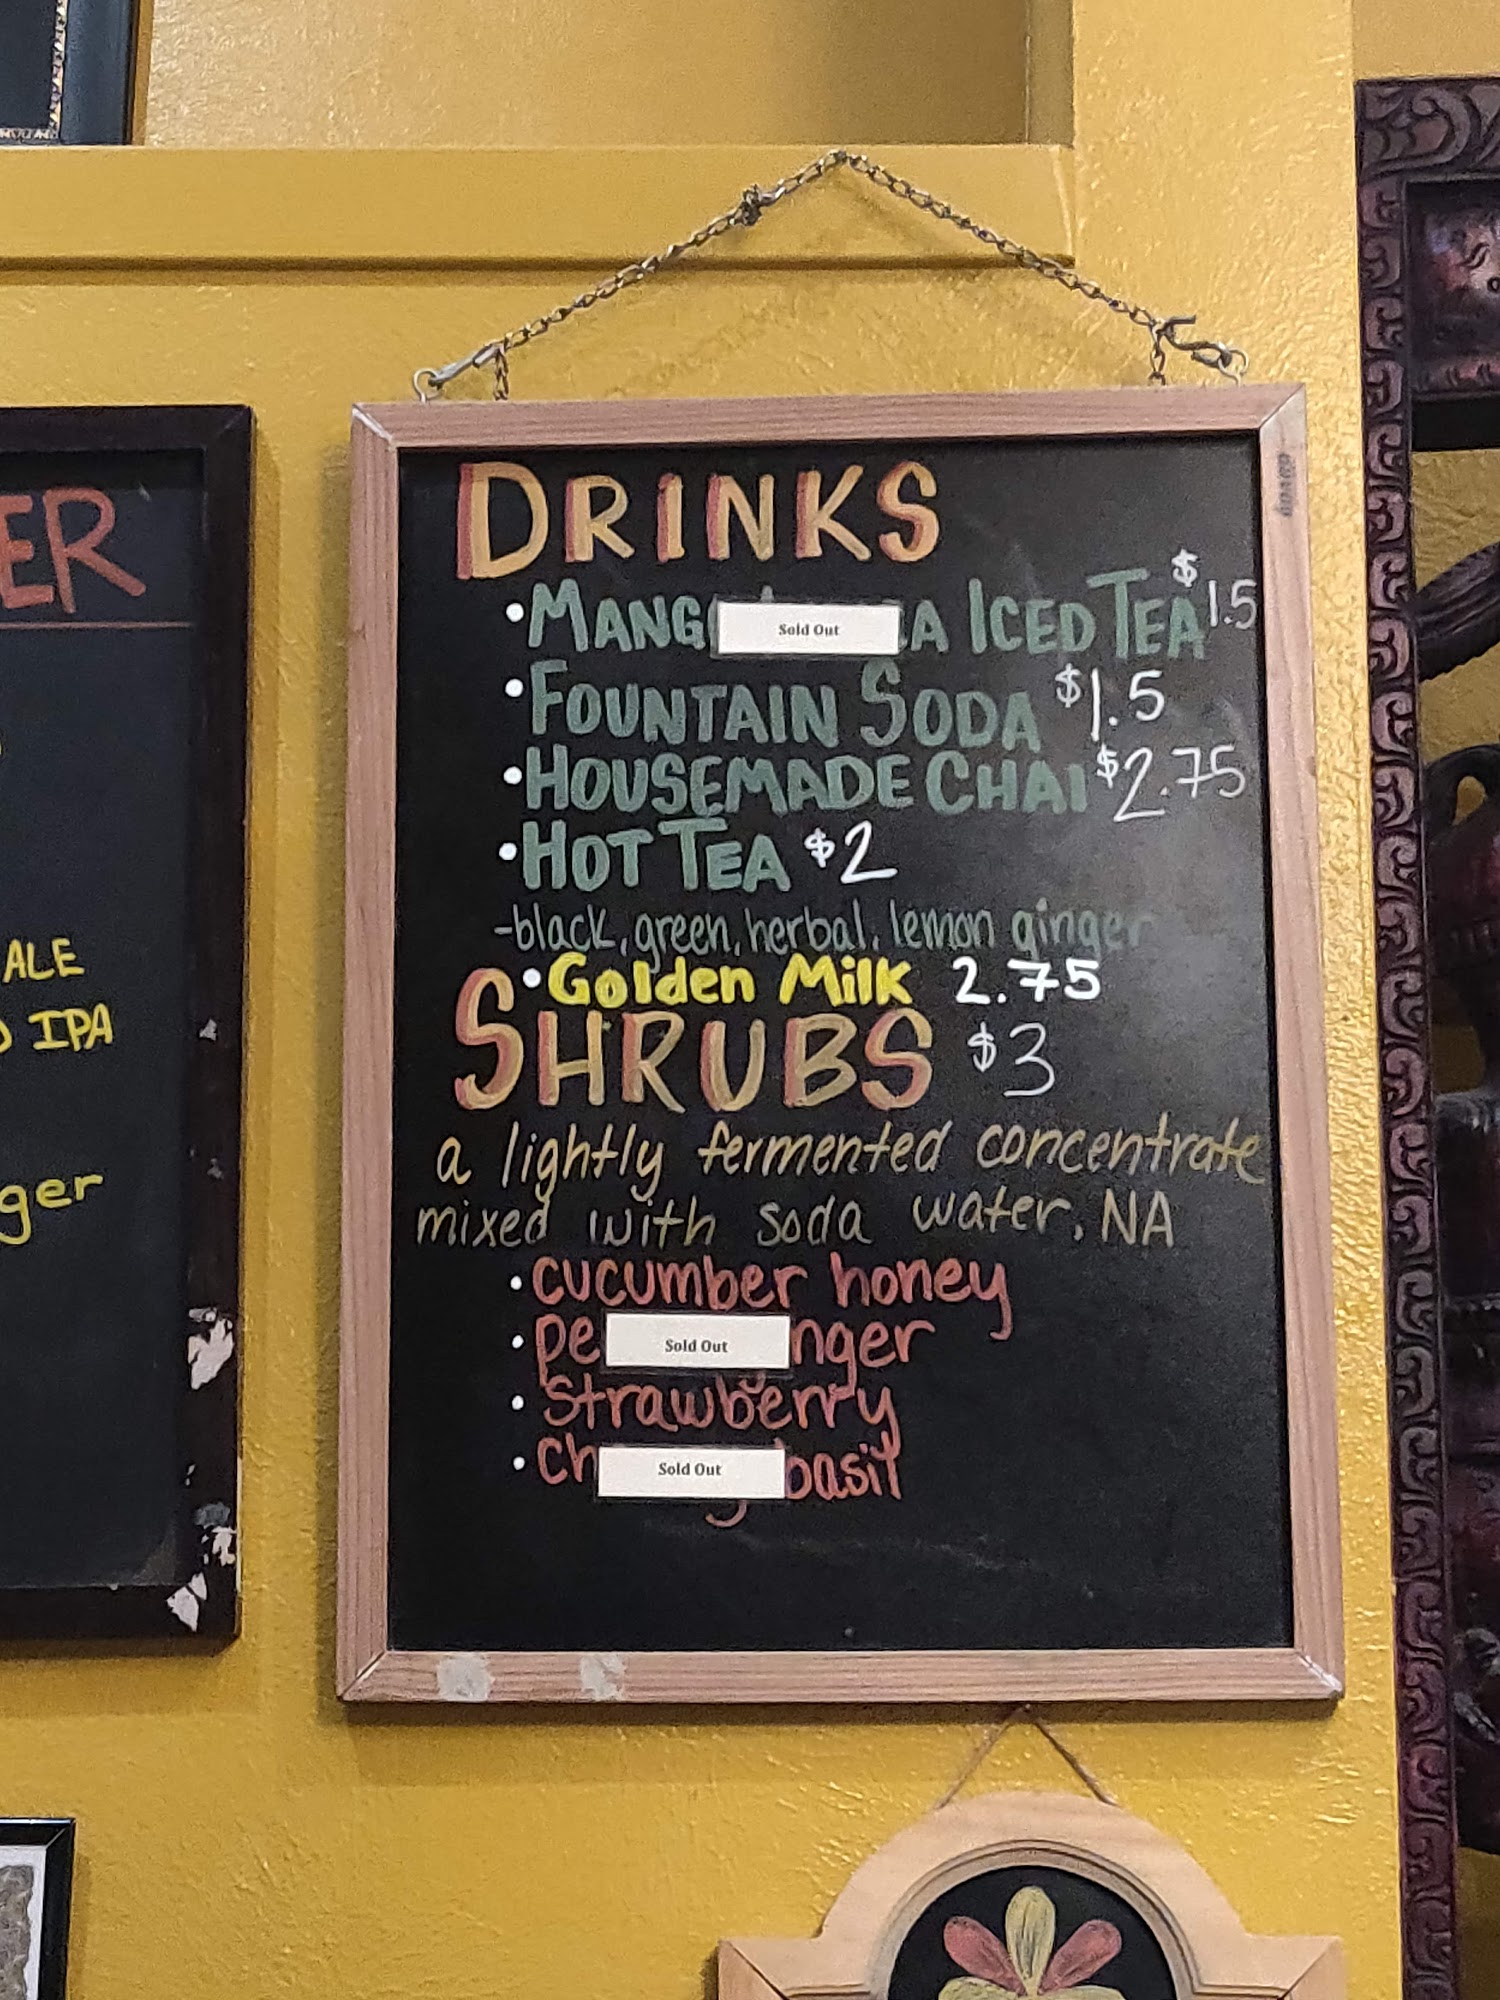 DRINKS
•MANG Sold Out A ICED TEA $1.5
•FOUNTAIN SODA $1.5
•HOUSEMADE CHAI $2.75
•HOT TEA $2
-black, green, herbal, lemon ginger
•Golden Milk 2.75
SHRUBS $3
a lightly fermented concentrate
mixed with soda water. NA
•cucumber honey
•pe Sold Out nger
•strawberry
•ch Sold Out basil
ER
ALE
IPA
ger